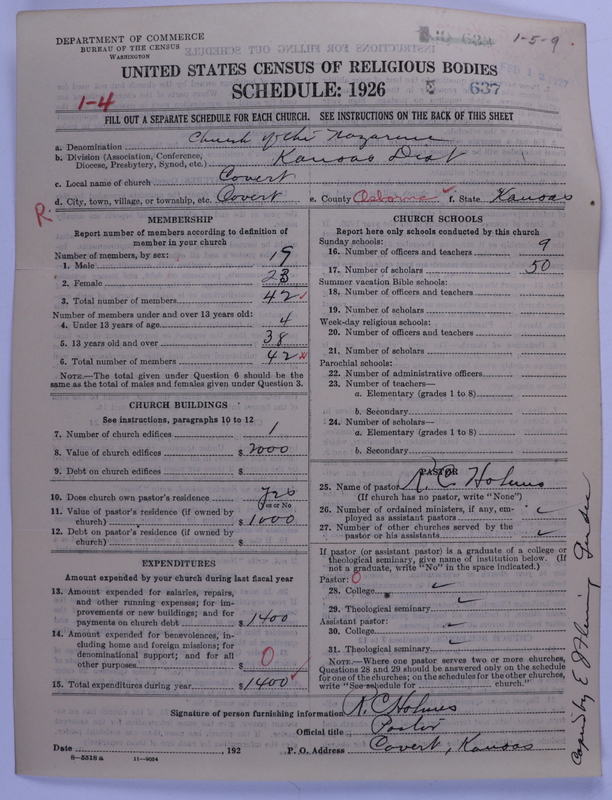 DEPARTMENT OF COMMERCE
BUREAU OF THE CENSUS
WASHINGTON
1-5-9
UNITED STATES CENSUS OF RELIGIOUS BODIES
SCHEDULE: 1926
637
1-4
FILL OUT A SEPARATE SCHEDULE FOR EACH CHURCH. SEE INSTRUCTIONS ON THE BACK OF THIS SHEET
a. Denomination Church of the Nazarene
b. Division (Association, Conference, Diocese, Presbytery, Synod, etc.) Kansas Dist
c. Local name of church Covert
d. City, town, village, or township, etc. Covert e. County Osborne f. State Kansas
R.
MEMBERSHIP
Report number of members according to definition of
member in your church
Number of members, by sex:
1. Male 19
2. Female 23
3. Total number of members 42
Number of members under and over 13 years old:
4. Under 13 years of age 4
5. 13 years old and over 38
6. Total number of members 42
NOTE.—The total given under Question 6 should be
the same as the total of males and females given under Question 3.
CHURCH BUILDINGS
See instructions, paragraphs 10 to 12
7. Number of church edifices 1
8. Value of church edifices $ 2000
9. Debt on church edifices $
10. Does church own pastor's residence yes
Yes or No
11. Value of pastor's residence (if owned by
church) $ 1000
12. Debt on pastor's residence (if owned by
church) $
EXPENDITURES
Amount expended by your church during last fiscal year
13. Amount expended for salaries, repairs,
and other running expenses; for im-
provements or new buildings; and for
payments on church debt $ 1400
14. Amount expended for benevolences, in-
cluding home and foreign missions; for
denominational support; and for all
other purposes $ 0
15. Total expenditures during year $ 1400
CHURCH SCHOOLS
Report here only schools conducted by this church
Sunday schools:
16. Number of officers and teachers 9
17. Number of scholars 50
Summer vacation Bible schools:
18. Number of officers and teachers
19. Number of scholars
Week-day religious schools:
20. Number of officers and teachers
21. Number of scholars
Parochial schools:
22. Number of administrative officers
23. Number of teachers—
a. Elementary (grades 1 to 8)
b. Secondary
24. Number of scholars—
a. Elementary (grades 1 to 8)
b. Secondary
PASTOR
25. Name of pastor N. C. Holmes
(If church has no pastor, write "None")
26. Number of ordained ministers, if any, em-
ployed as assistant pastors
27. Number of other churches served by the
pastor or his assistants
If pastor (or assistant pastor) is a graduate of a college or
theological seminary, give name of institution below. (If
not a graduate, write "No" in the space indicated.)
Pastor: 0
28. College
29. Theological seminary
Assistant pastor:
30. College
31. Theological seminary
NOTE.—Where one pastor serves two or more churches,
Questions 28 and 29 should be answered only on the schedule
for one of the churches; on the schedules for the other churches,
write "See schedule for church."
Signature of person furnishing information N. C. Holmes
Official title Pastor
Date , 192 P. O. Address Covert, Kansas
8-5318 a 11-9034
Copied by E J Fleming